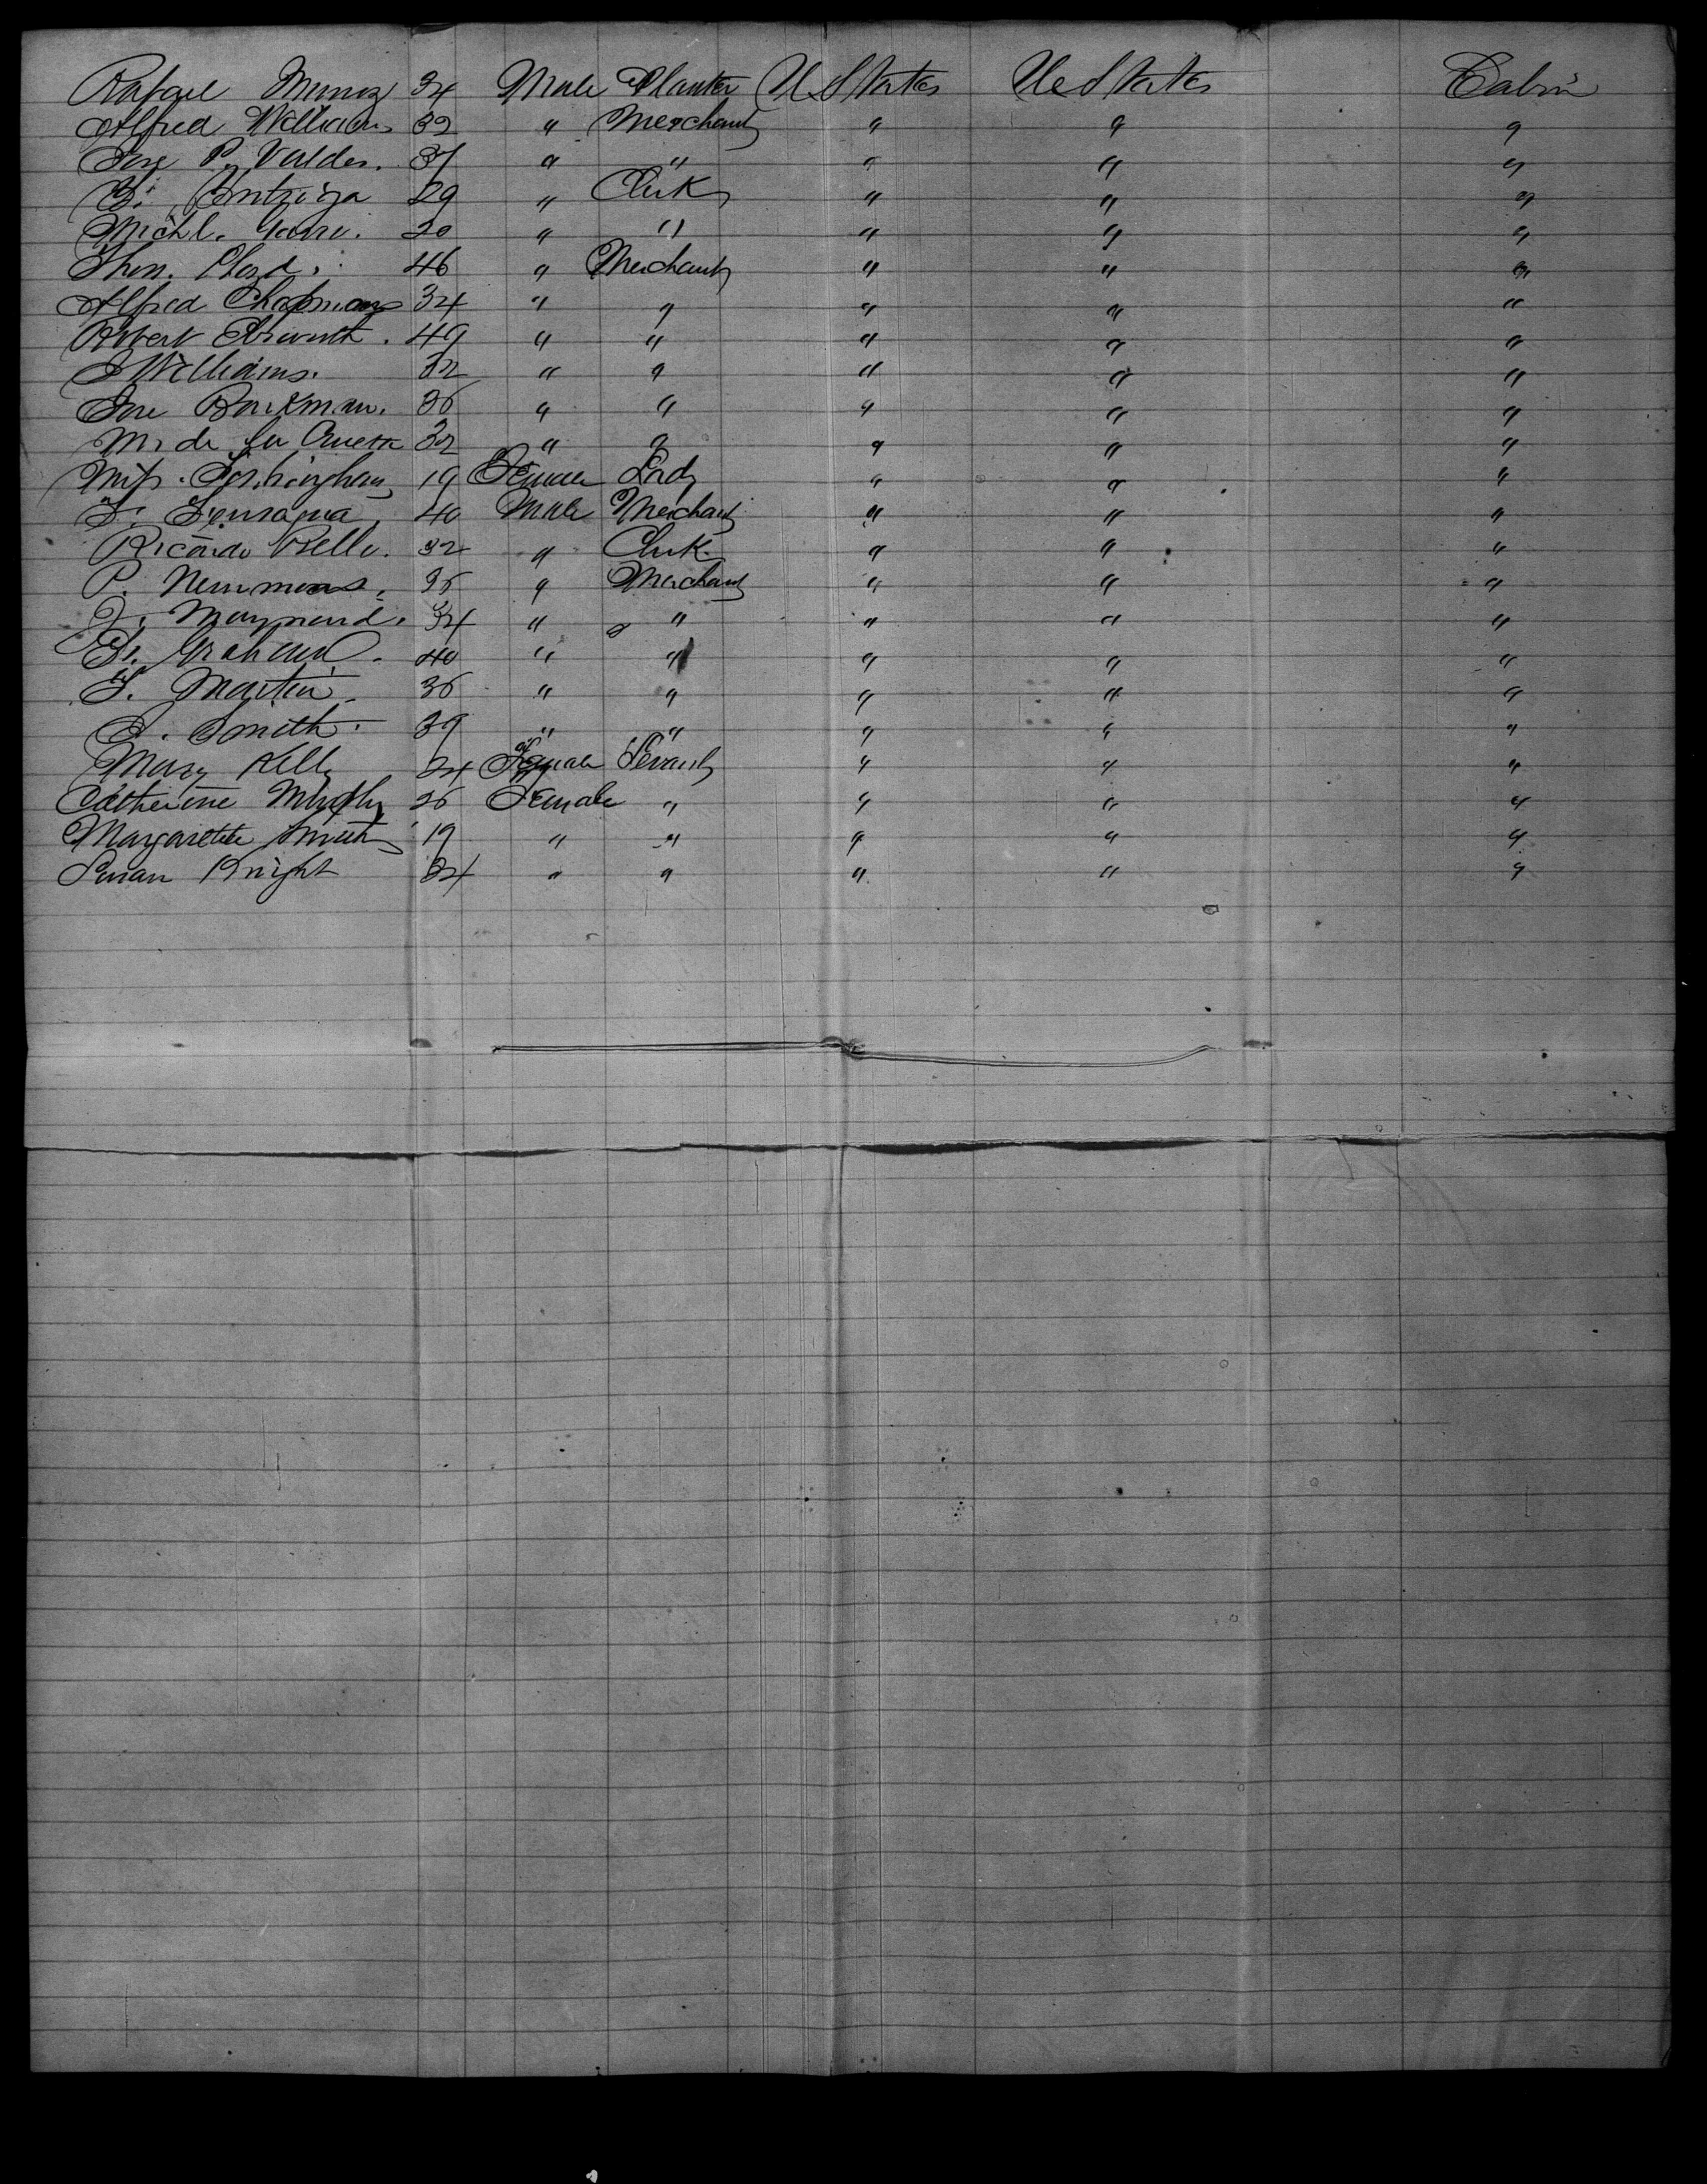 Rafael Munoz 34 Male Planter U States U States Cabin
Alfred Williams 32 " Merchant " " "
Jose P. Valdes. 37 " " " " "
29 " Clerk " " "
Michl. 20 " " " " "
Thos. Lloyd. 46 " Merchant " " "
Alfred Chapman 34 " " " " "
Robert 49 " " " " "
J Williams. 32 " " " " "
Jose 36 " " " " "
M. de la Cuesta 32 " " " " "
Miss 19 Female Lady " " "
40 Male Merchant " " "
Ricardo Bello. 32 " Clerk. " " "
P. 36 " Merchant " " "
J. Maynard. 34 " " " " "
Graham. 40 " " " " "
S. Martin 36 " " " " "
Smith. 39 " " " " "
Mary Kelly 24 Female Servant " " "
Catherine Murphy 26 Female " " " "
Margarette Smith 19 " " " " "
Susan Knight 34 " " " " "